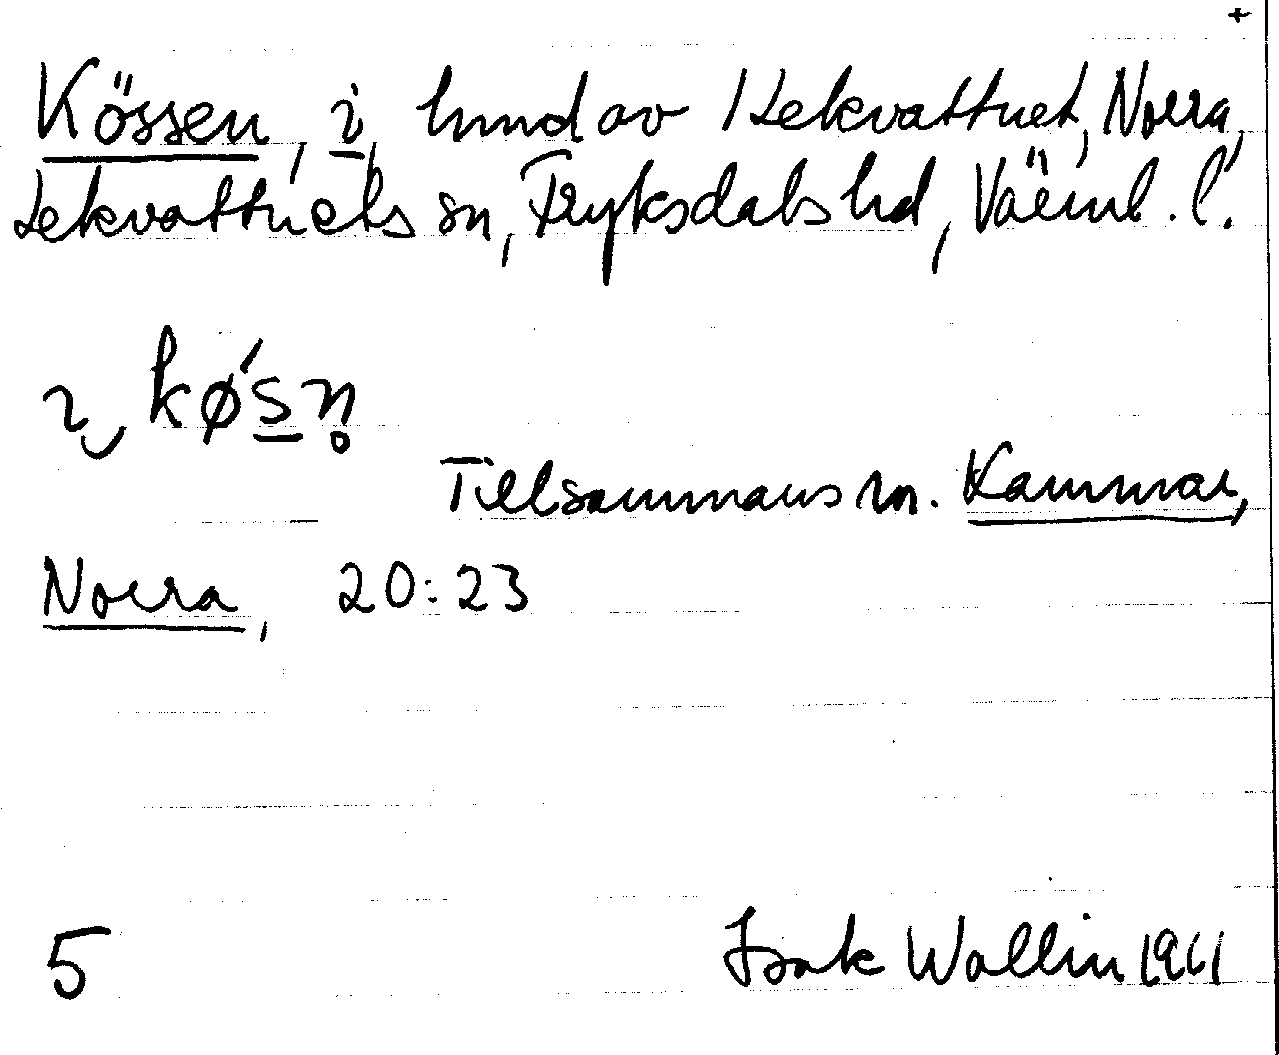 +
Kössen, i, hmd av 1 Lekvattnet, Norra,
Lekvattnets sn, Fryksdals hd, Värml. l.
i køsn
Tillsammans m. Kammar,
Norra, 20:23
5 Isak Wallin 1961